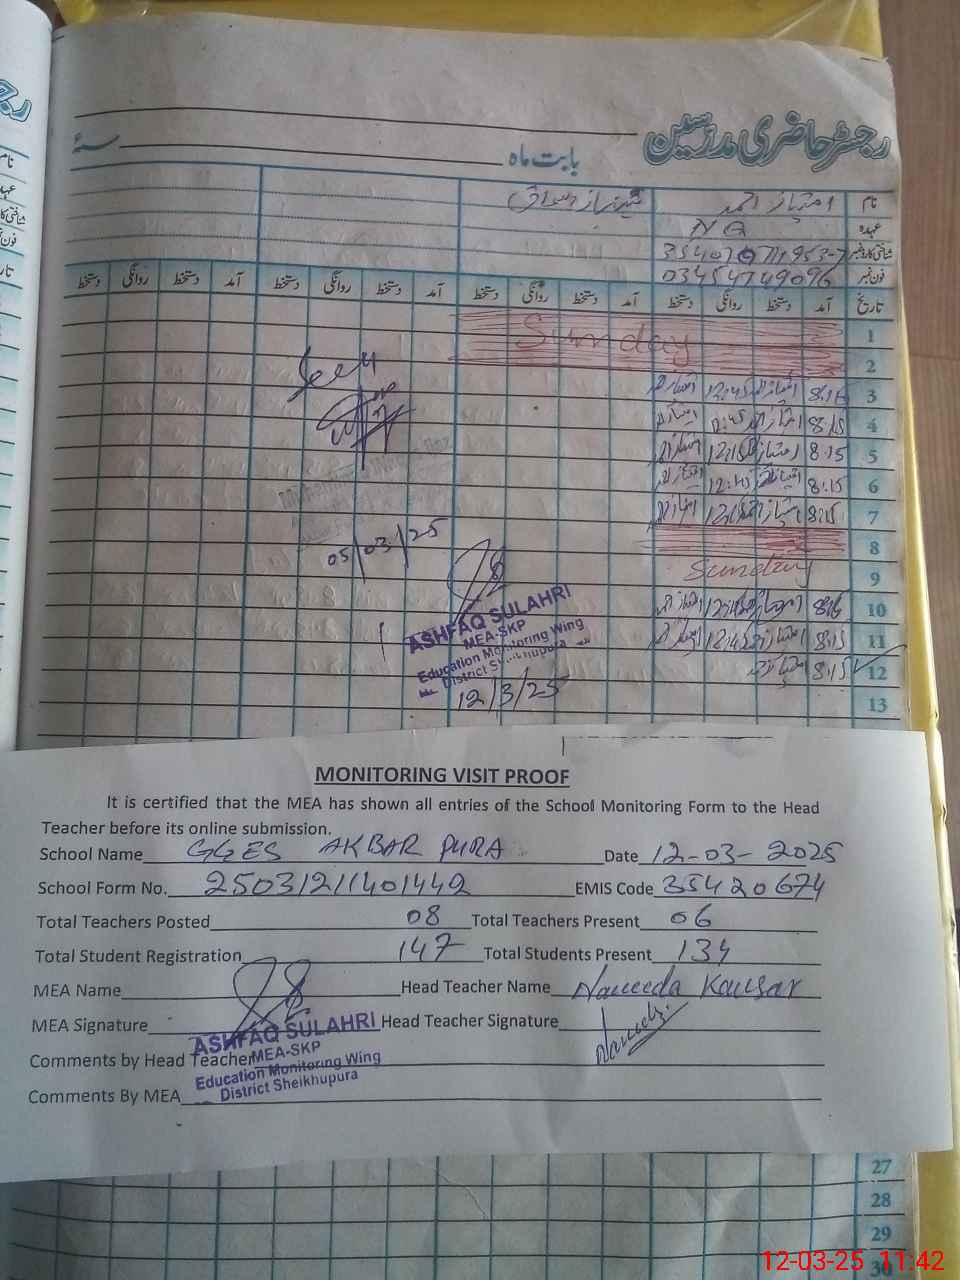 رجسٹر حاضری مدرسین
بابت ماہ ســـنہ
نام امتیاز احمد
عہدہ NQ
شناختی کارڈ نمبر
فون نمبر 03454749096
تاریخ آمد دستخط روانگی دستخط آمد دستخط روانگی دستخط آمد دستخط روانگی دستخط آمد دستخط روانگی دستخط
1 Sunday
2
3 8.16 امتیاز 12:45 امتیاز
4 8.15 امتیاز 12:45 امتیاز
5 8.15 امتیاز 12:15 امتیاز
6 8:15 امتیاز 12:45 امتیاز
7 8:15 امتیاز 12:15 امتیاز
8
9 Sunday
10 8:16 امتیاز 12:45 امتیاز
11 8:15 امتیاز 12:45 امتیاز
12 8:15 امتیاز
13
Seen
05/03/25
ASHFAQ SULAHRI
MEA-SKP
Education Monitoring Wing
District
12/3/25
MONITORING VISIT PROOF
It is certified that the MEA has shown all entries of the School Monitoring Form to the Head
Teacher before its online submission.
School Name GGES AKBAR PURA Date 12-03-2025
School Form No. 25031211401449 EMIS Code 35420674
Total Teachers Posted 08 Total Teachers Present 06
Total Student Registration 147 Total Students Present 134
MEA Name Head Teacher Name Naveeda Kausar
MEA Signature Head Teacher Signature
ASHFAQ SULAHRI
Comments by Head Teacher
MEA-SKP
Education Monitoring Wing
District Sheikhupura
Comments By MEA
27
28
29
30
12-03-25 11:42